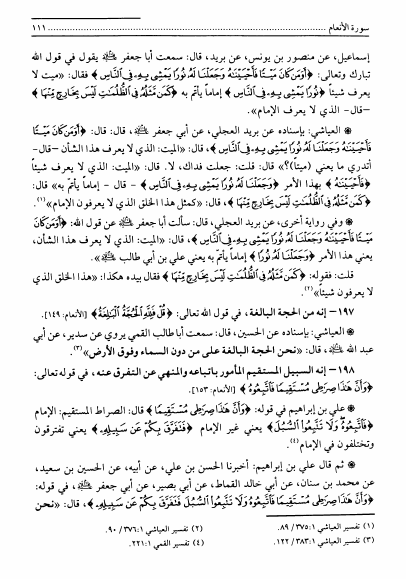 سورة الأنعام ١١١
إسماعيل، عن منصور بن يونس، عن بريد، قال: سمعت أبا جعفر ﷺ يقول في قول الله
تبارك وتعالى: ﴿أَوَمَن كَانَ مَيْتًا فَأَحْيَيْنَٰهُ وَجَعَلْنَا لَهُ نُورًا يَمْشِى بِهِ فِى النَّاسِ﴾ فقال: «ميت لا
يعرف شيئاً ﴿نُورًا يَمْشِى بِهِ فِى النَّاسِ﴾ إماماً يأتم به ﴿كَمَن مَّثَلُهُ فِى الظُّلُمَٰتِ لَيْسَ بِخَارِجٍ مِّنْهَا﴾
–قال– الذي لا يعرف الإمام».
● العياشي: بإسناده عن بريد العجلي، عن أبي جعفر ﷺ، قال: قال: ﴿أَوَمَن كَانَ مَيْتًا
فَأَحْيَيْنَٰهُ وَجَعَلْنَا لَهُ نُورًا يَمْشِى بِهِ فِى النَّاسِ﴾، قال: «الميت: الذي لا يعرف هذا الشأن –قال–
أتدري ما يعني (ميتاً)؟» قال: قلت: جعلت فداك، لا. قال: «الميت: الذي لا يعرف شيئاً
﴿فَأَحْيَيْنَٰهُ﴾ بهذا الأمر ﴿وَجَعَلْنَا لَهُ نُورًا يَمْشِى بِهِ فِى النَّاسِ﴾ – قال – إماماً يأتم به» قال:
﴿كَمَن مَّثَلُهُ فِى الظُّلُمَٰتِ لَيْسَ بِخَارِجٍ مِّنْهَا﴾، قال: «كمثل هذا الخلق الذي لا يعرفون الإمام»(١).
● وفي رواية أخرى، عن بريد العجلي، قال: سألت أبا جعفر ﷺ عن قول الله: ﴿أَوَمَن كَانَ
مَيْتًا فَأَحْيَيْنَٰهُ وَجَعَلْنَا لَهُ نُورًا يَمْشِى بِهِ فِى النَّاسِ﴾، قال: «الميت: الذي لا يعرف هذا الشأن،
يعني هذا الأمر ﴿وَجَعَلْنَا لَهُ نُورًا﴾ إماماً يأتم به يعني علي بن أبي طالب ﷺ».
قلت: فقوله: ﴿كَمَن مَّثَلُهُ فِى الظُّلُمَٰتِ لَيْسَ بِخَارِجٍ مِّنْهَا﴾ فقال بيده هكذا: «هذا الخلق الذي
لا يعرفون شيئاً»(٢).
١٩٧– إنه من الحجة البالغة، في قول الله تعالى: ﴿قُلْ فَلِلَّهِ الْحُجَّةُ الْبَٰلِغَةُ﴾ [الأنعام: ١٤٩].
● العياشي: بإسناده عن الحسين، قال: سمعت أبا طالب القمي يروي عن سدير، عن أبي
عبد الله ﷺ، قال: «نحن الحجة البالغة على من دون السماء وفوق الأرض»(٣).
١٩٨– إنه السبيل المستقيم المأمور باتباعه والمنهي عن التفرق عنه، في قوله تعالى:
﴿وَأَنَّ هَٰذَا صِرَٰطِى مُسْتَقِيمًا فَاتَّبِعُوهُ﴾ [الأنعام: ١٥٣].
● علي بن إبراهيم في قوله: ﴿وَأَنَّ هَٰذَا صِرَٰطِى مُسْتَقِيمًا﴾ قال: الصراط المستقيم: الإمام
﴿فَاتَّبِعُوهُ وَلَا تَتَّبِعُوا السُّبُلَ﴾ يعني غير الإمام ﴿فَتَفَرَّقَ بِكُمْ عَن سَبِيلِهِ﴾ يعني تفترقون
وتختلفون في الإمام(٤).
● ثم قال علي بن إبراهيم: أخبرنا الحسن بن علي، عن أبيه، عن الحسين بن سعيد،
عن محمد بن سنان، عن أبي خالد القماط، عن أبي بصير، عن أبي جعفر ﷺ، في قوله:
﴿وَأَنَّ هَٰذَا صِرَٰطِى مُسْتَقِيمًا فَاتَّبِعُوهُ وَلَا تَتَّبِعُوا السُّبُلَ فَتَفَرَّقَ بِكُمْ عَن سَبِيلِهِ﴾، قال: «نحن
(١) تفسير العياشي ١: ٣٧٥/ ٨٩. (٢) تفسير العياشي ١: ٣٧٦/ ٩٠.
(٣) تفسير العياشي ١: ٣٨٣/ ١٢٢. (٤) تفسير القمي ١: ٢٢١.